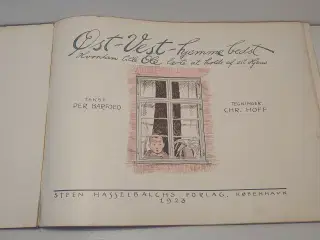 Øst-Vest-hjemme bedst
Hvordan lille Ole lærte at holde af sit Hjem
TEKST:
PER BARFOED
TEGNINGER
CHR. HOFF
STEEN HASSELBALCHS FORLAG. KØBENHAVN
1923